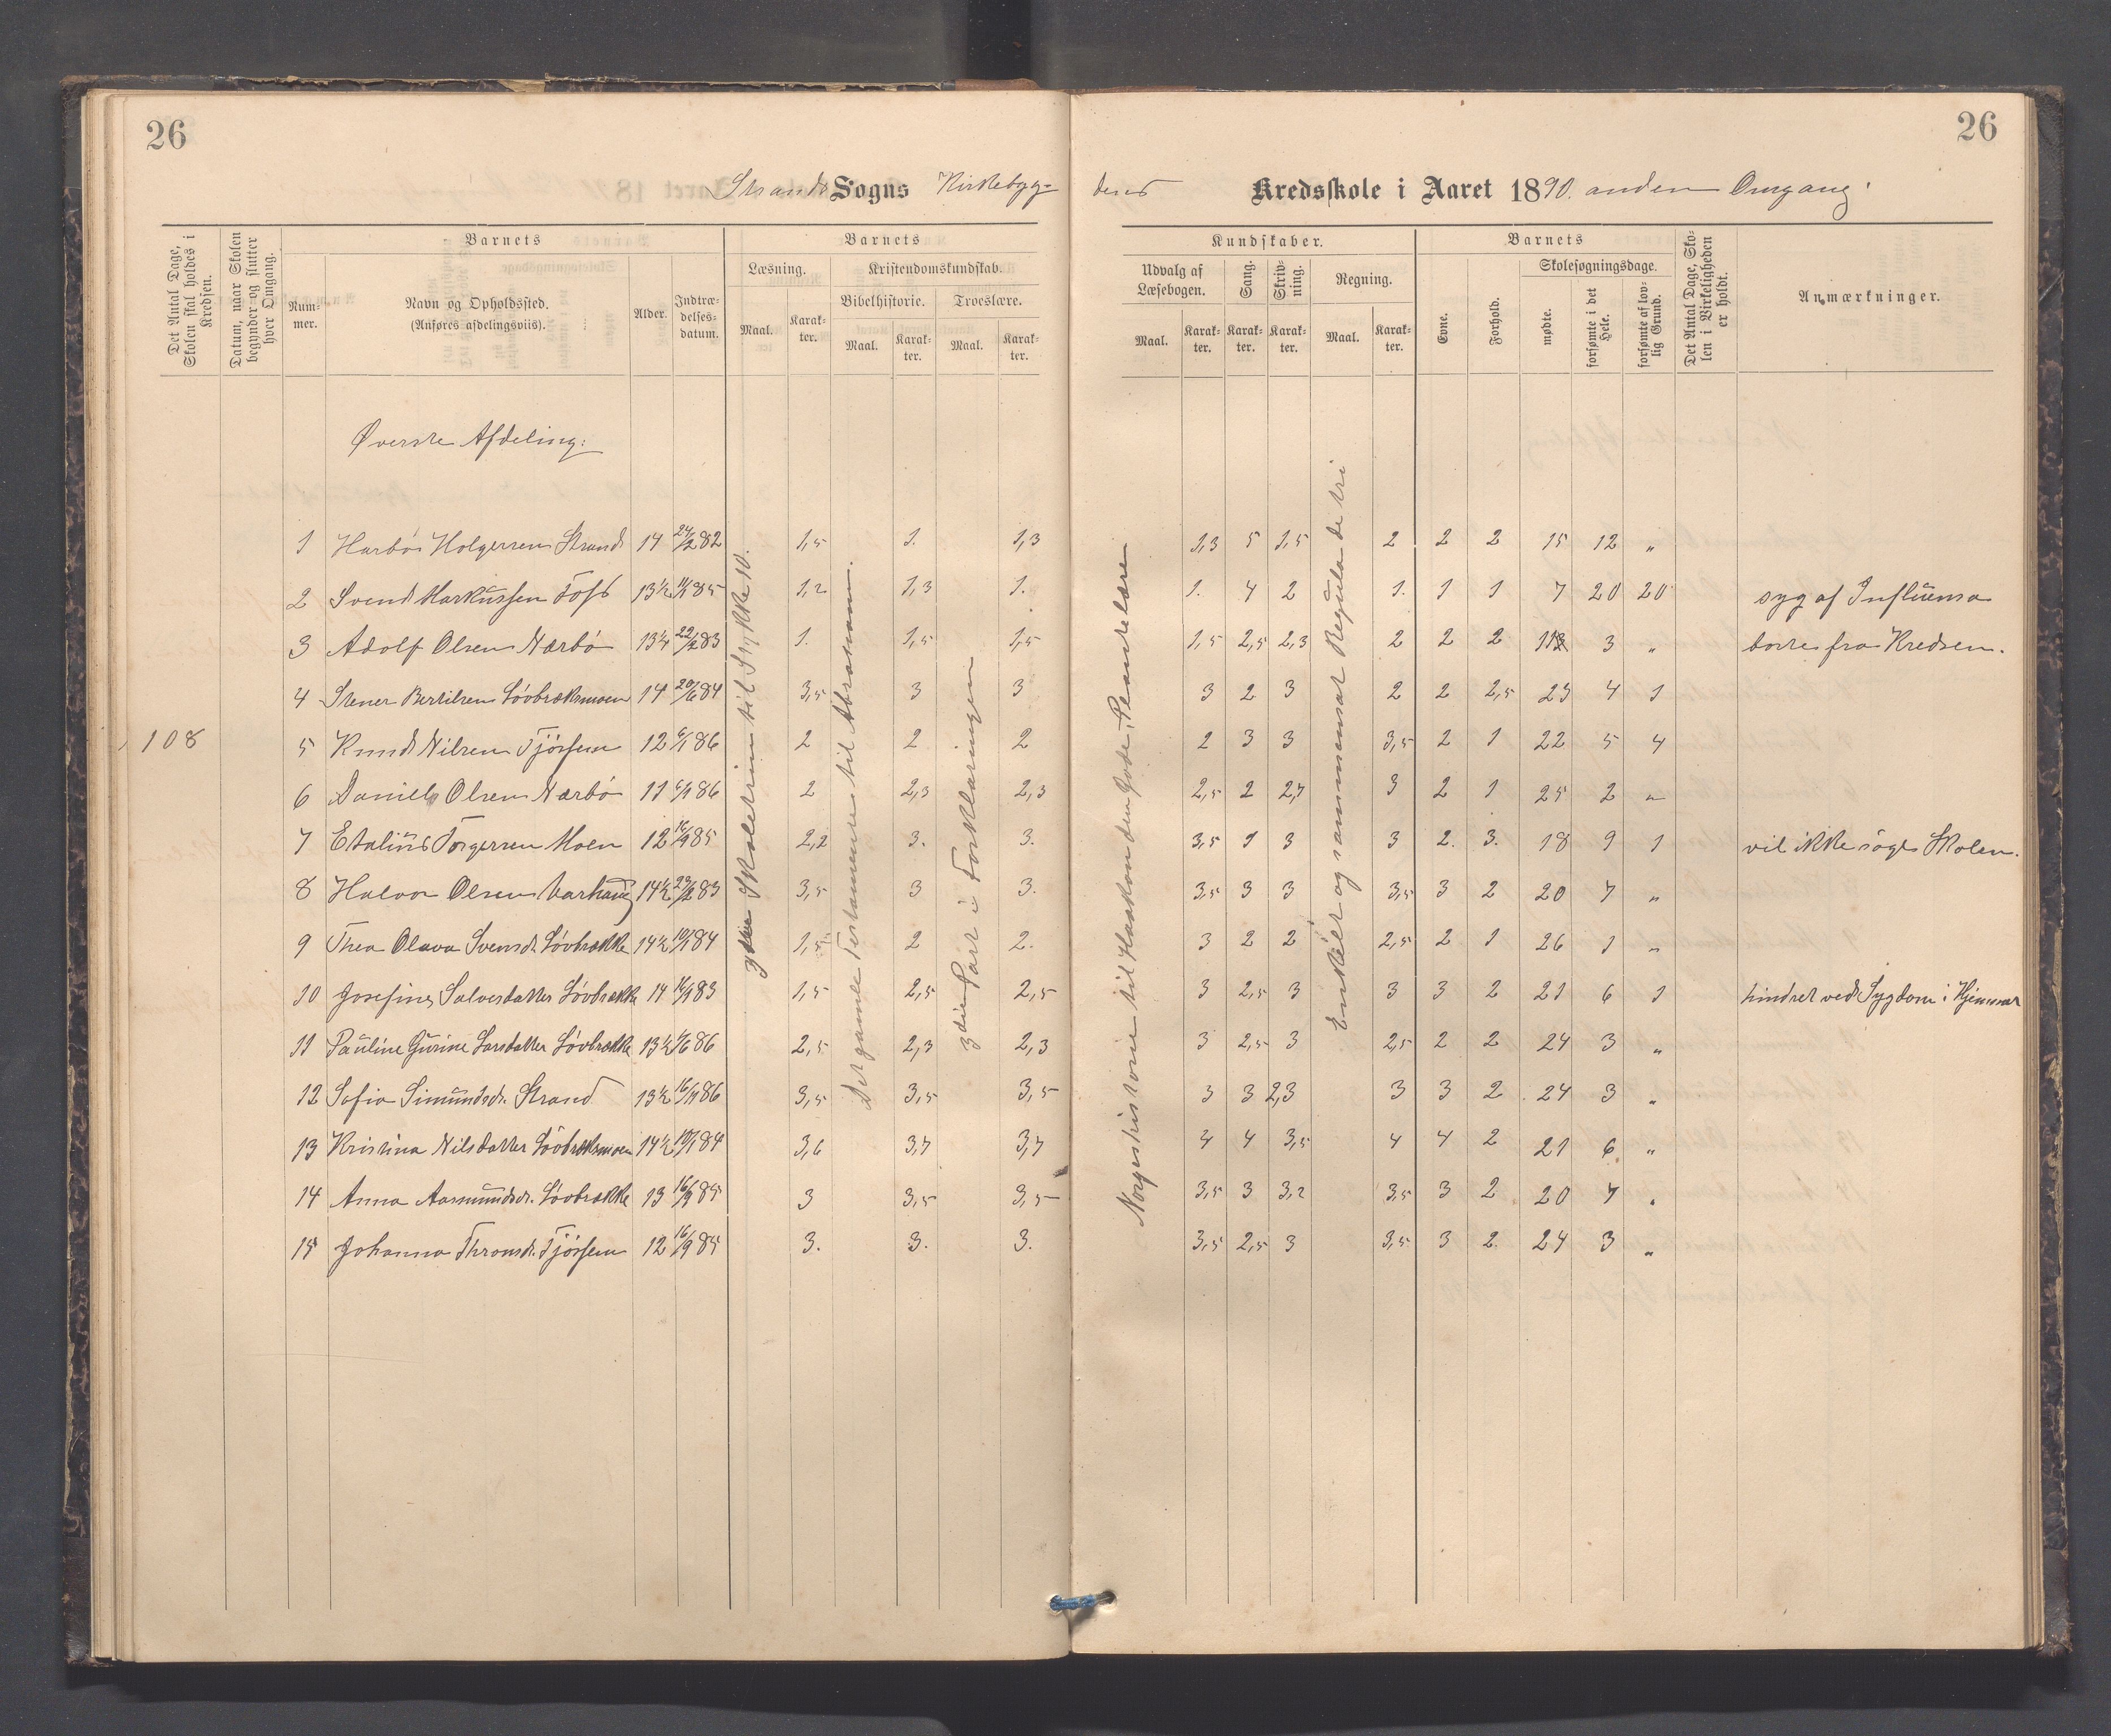 26
26
Strands Sogns Kirkebyg-
dens Kredsskole i Aaret 1890. anden Omgang.
Det Antal Dage, Skolen skal holdes i Kredsen.
Datum, naar Skolen begynder og slutter hver Omgang.
Barnets
Nummer.
Navn og Opholdssted.
(Anføres afdelingsviis).
Alder.
Indtrædelsesdatum.
Barnets
Læsning.
Maal.
Karakter.
Kristendomskundskab.
Bibelhistorie.
Maal.
Karakter.
Troeslære.
Maal.
Karakter.
Kundskaber.
Udvalg af Læsebogen.
Maal.
Karakter.
Sang.
Karakter.
Skrivning.
Karakter.
Regning.
Maal.
Karakter.
Barnets
Evne.
Forhold.
Skolesøgningsdage.
mødte.
forsømte i det Hele.
forsømte af lovlig Grund.
Det Antal Dage, Skolen i Virkeligheden er holdt.
Anmærkninger.
Øverste Afdeling:
108
Skoletrin til Stykke 10.
Det gamle Testamente til Abraham.
3die Part i Forklaringen
Norgeshistorie til Haakon den Gode,
Enkel og sammensat Reguladetri
1 Harbó Holgersen Strand 14 24/2 82 1,5 1. 1,3 1,3 5 1,5 2 2 2 15 12 „
2 Svend Markussen Tofs 13½ 11/1 85 1,2 1,3 1. 1. 4 2 1. 1 1 7 20 20 syg af Influensa
3 Adolf Olsen Nærbö 13¼ 22/2 83 1. 1,5 1,5 1,5 2,5 2,3 2 2 2 3 „ borte fra Kredsen.
4 Stener Bertilsen Lövbræksmoen 14 20/6 84 3,5 3 3 3 2 3 2 2 2,5 23 4 1
5 Knud Nilsen Tjörsem 12 6/1 86 2 2 2 2 3 3 3,5 2 1 22 5 4
6 Daniel Olsen Nærbö 11 6/1 86 2 2,3 2,3 2,5 2 2,7 3 2 1 25 2 „
7 Torgersen Moen 12 16/9 85 2,2 3. 3. 3,5 1 3 3 2. 3. 18 9 1 vil ikke söge Skolen.
8 Halvor Olsen Varhaug 14½ 23/2 83 3,5 3 3. 3,5 3 3 3,5 3 2 20 7 „
9 Thea Olava Svensdr. Lövbrække 14½ 10/1 84 1,5 2 2. 3 2 2 2,5 2 1 26 1 „
10 Josefine Salvesdatter Lövbrække 14 16/1 83 1,5 2,5 2,5 3 2,5 3 3 3 2 21 6 1 hindret ved Sygdom i Hjemmet
11 Pauline Gurine Larsdatter Lövbrække 13½ 1/6 86 2,5 2,3 2,3 3 2,5 3 2,5 2 2 24 3 „
12 Sofia Simundsdr. Strand 13½ 16/1 86 3,5 3,5 3,5 3 3 2,3 3 3 2 24 3 „
13 Kristina Nilsdatter Lövbræksmoen 14½ 10/1 84 3,6 3,7 3,7 4 4 3,5 4 4 2 21 6 „
14 Anna Aasmundsdr. Lövbrække 13 16/9 85 3 3,5 3,5 3,5 3 3,2 3,5 3 2 20 7 „
15 Johanna Thromsdr. Tjörsem 12 16/9 85 3. 3. 3. 3,5 2,5 3 3,5 3 2 24 3 „